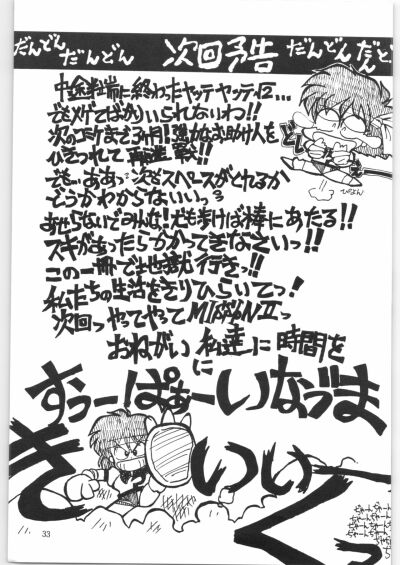 だんどん だんどん 次回予告 だんどん だんどん
中途半端に終わったヤッテヤッティ…
でもメゲてばかりいられないわ!!
次のコミケまで3ヶ月!強力な助け人を
ひきつれて再挑戦!!
でも…ああっ次もスペースがとれるか
どうかわからないいっ
あせらないでみんな!犬も歩けば棒にあたる!!
スキがあったらかかってきなさいっ!!
この一冊で地獄行きっ!!
私たちの生活をきりひらいてっ!
次回っやってやってMISSIONⅡっ
おねがい私達に時間を
に
すっーぱぁーいなづま
きいいーくっ
びよよん
33